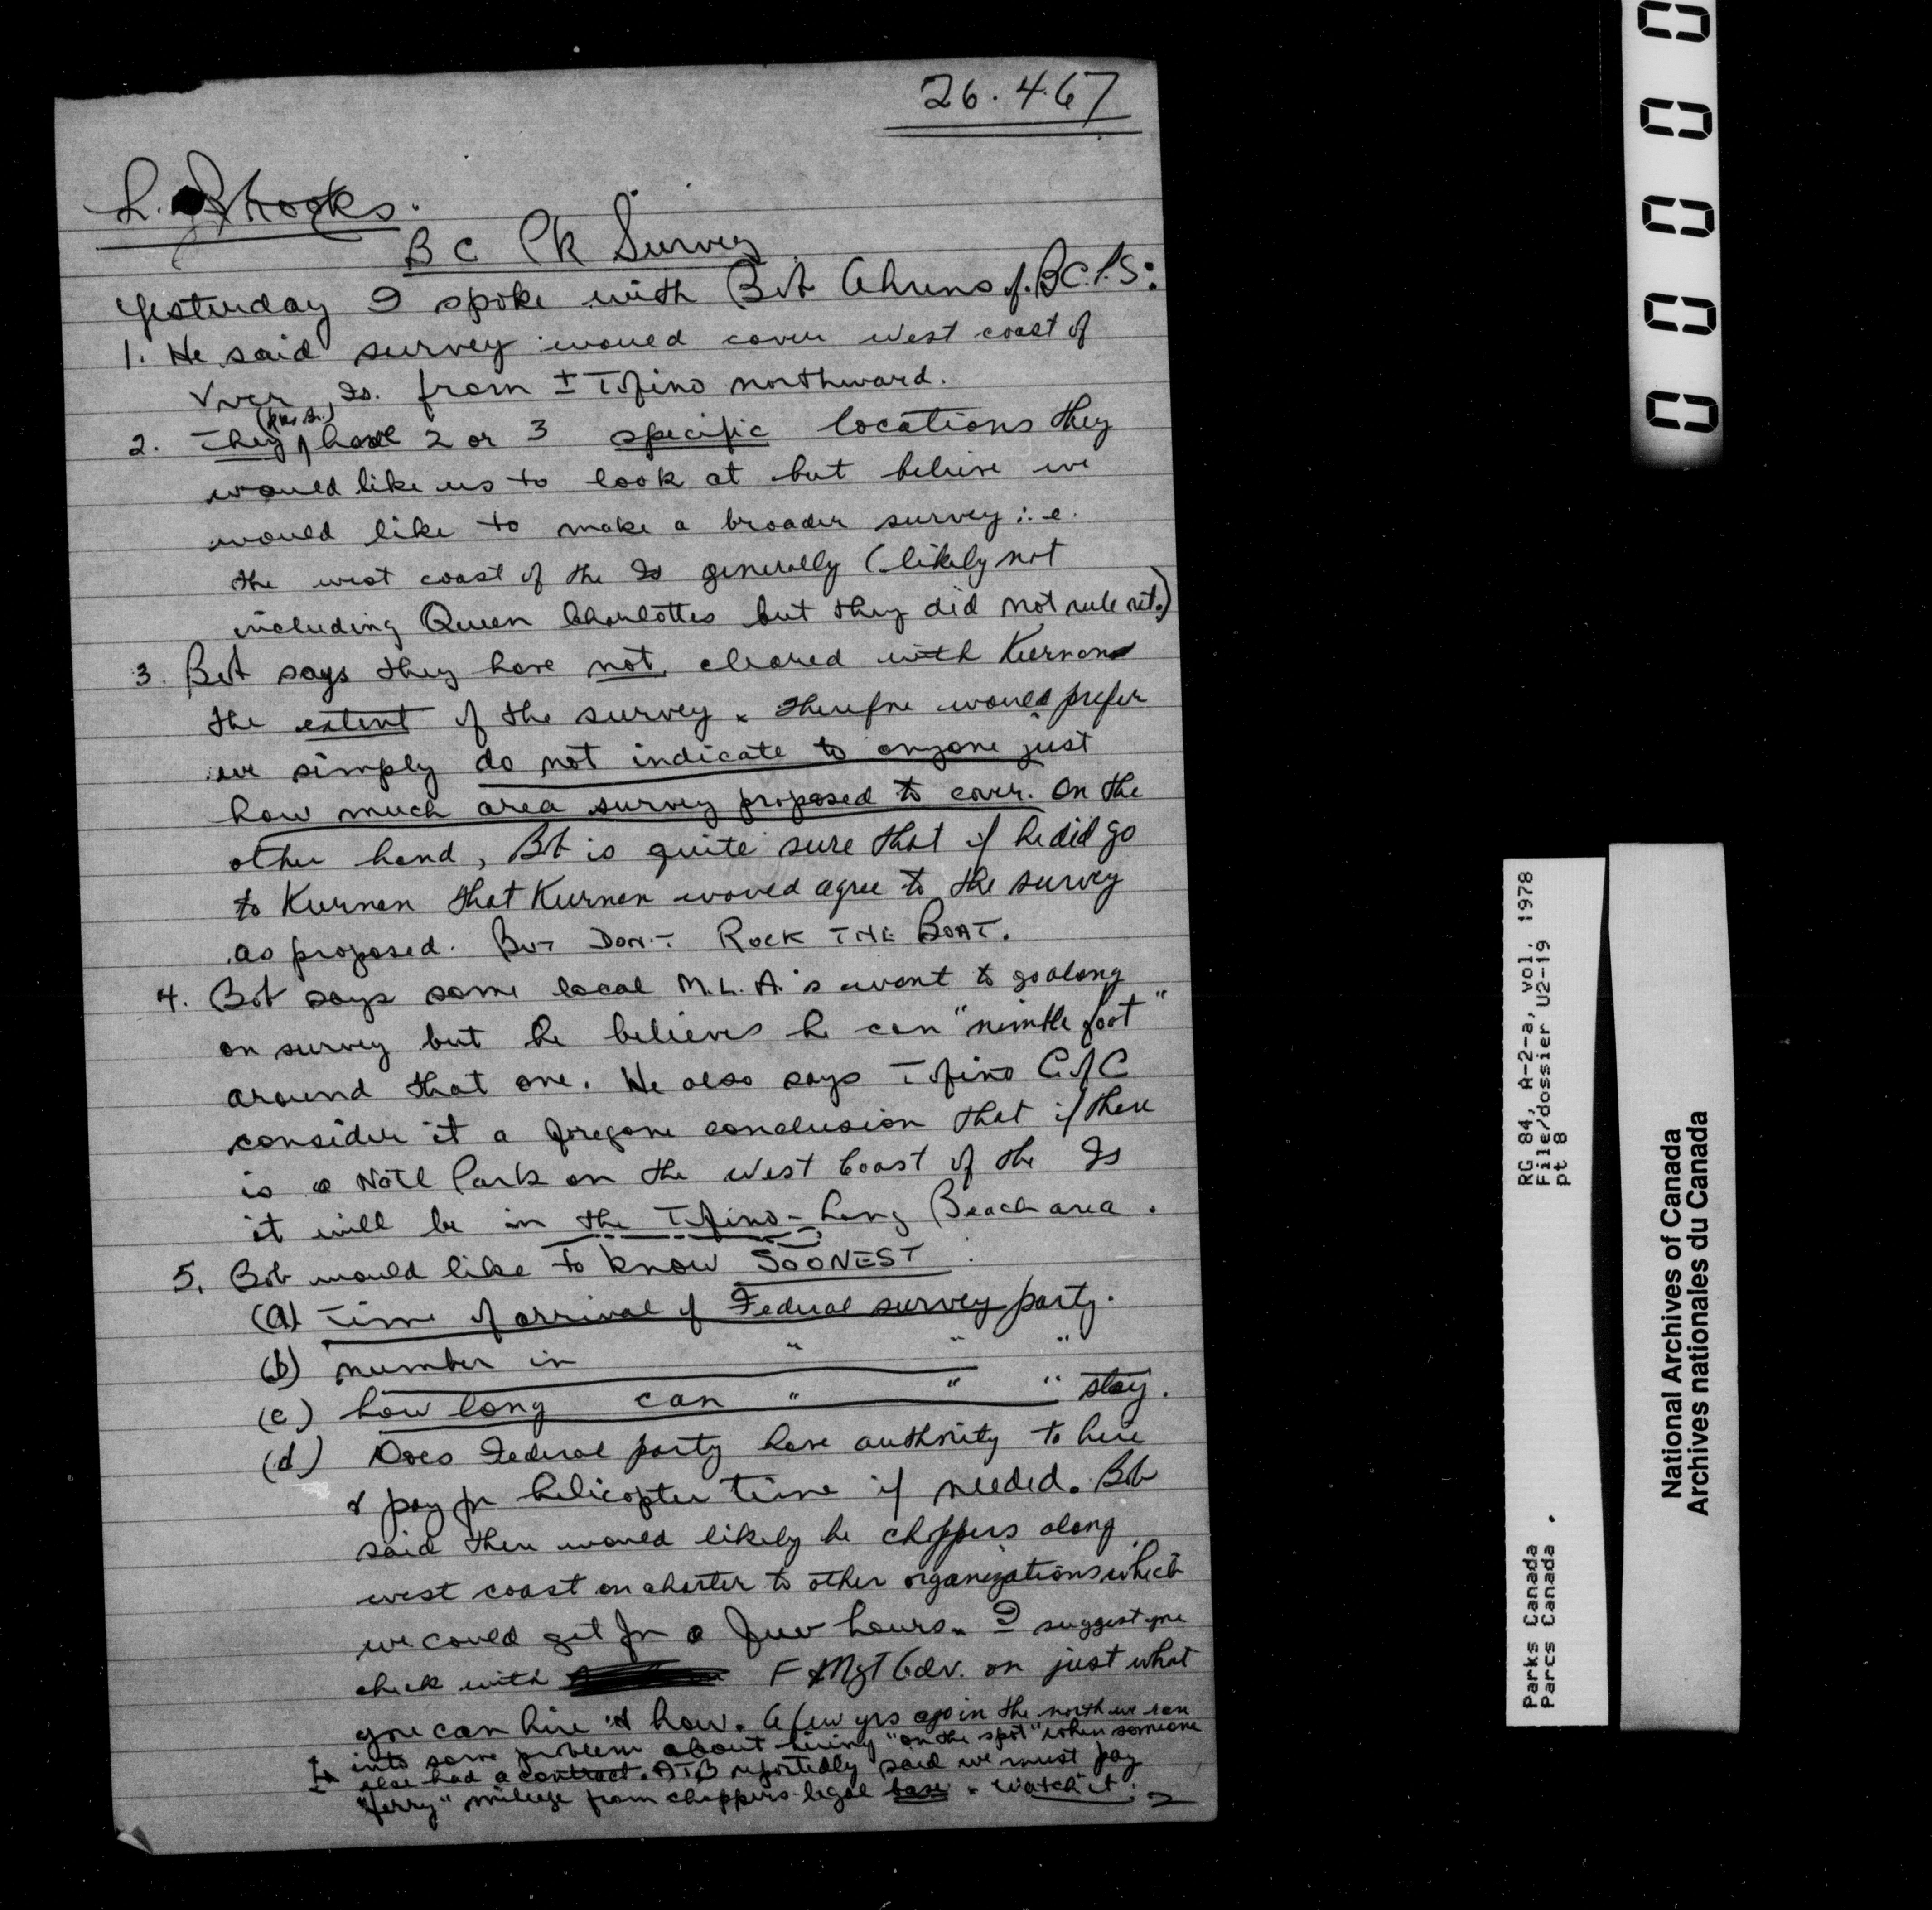 26.4.67
L. Brooks.
BC Pk Survey
Yesterday I spoke with Bob Ahrens of BC P.S:
1. He said survey would cover west coast of
Vver Is. from ± Tofino northward.
2. They have 2 or 3 specific locations they
would like us to look at but believe we
would like to make a broader survey i.e.
the west coast of the Is generally (likely not
including Queen Charlottes but they did not rule out.)
3. Bob says they have not cleared with Kiernan
the extent of the survey & therefore would prefer
we simply do not indicate to anyone just
how much area survey proposed to cover. On the
other hand, Bob is quite sure that if he did go
to Kiernan that Kiernan would agree to the survey
as proposed. BUT DON'T ROCK THE BOAT.
4. Bob says some local M.L.A.'s want to go along
on survey but he believes he can "nimble foot"
around that one. He also says Tofino C of C
consider it a foregone conclusion that if there
is a Natl Park on the West Coast of the Is
it will be in the Tofino-Long Beach area.
5. Bob would like to know SOONEST
(a) Time of arrival of Federal survey party.
(b) number in " " "
(c) how long can " " " stay.
(d) Does Federal party have authority to hire
& pay for helicopter time if needed. Bob
said there would likely be choppers along
west coast on charter to other organizations which
we could get for a few hours. I suggest you
check with F & Mgt Adv. on just what
you can hire & how. A few yrs ago in the north we ran
into some problem about hiring "on the spot" when someone
else had a contract. ATB reportedly said we must pay
"ferry" mileage from choppers legal base. Watch it!
2
0 0 0 0 0
RG 84, A-2-a, vol. 1978
File/dossier U2-19
pt 8
Parks Canada
Parcs Canada .
National Archives of Canada
Archives nationales du Canada